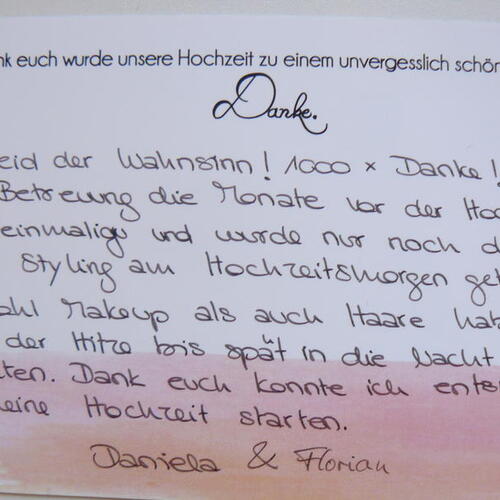 nk euch wurde unsere Hochzeit zu einem unvergesslich schön
Danke.
eid der Wahnsinn! 1000 x Danke!
Betreuung die Monate vor der Hoc
einmalig und wurde nur noch d
Styling am Hochzeitsmorgen get
ahl Makeup als auch Haare hab
der Hitze bis spät in die Nacht
ten. Dank euch konnte ich ents
eine Hochzeit starten.
Daniela & Florian